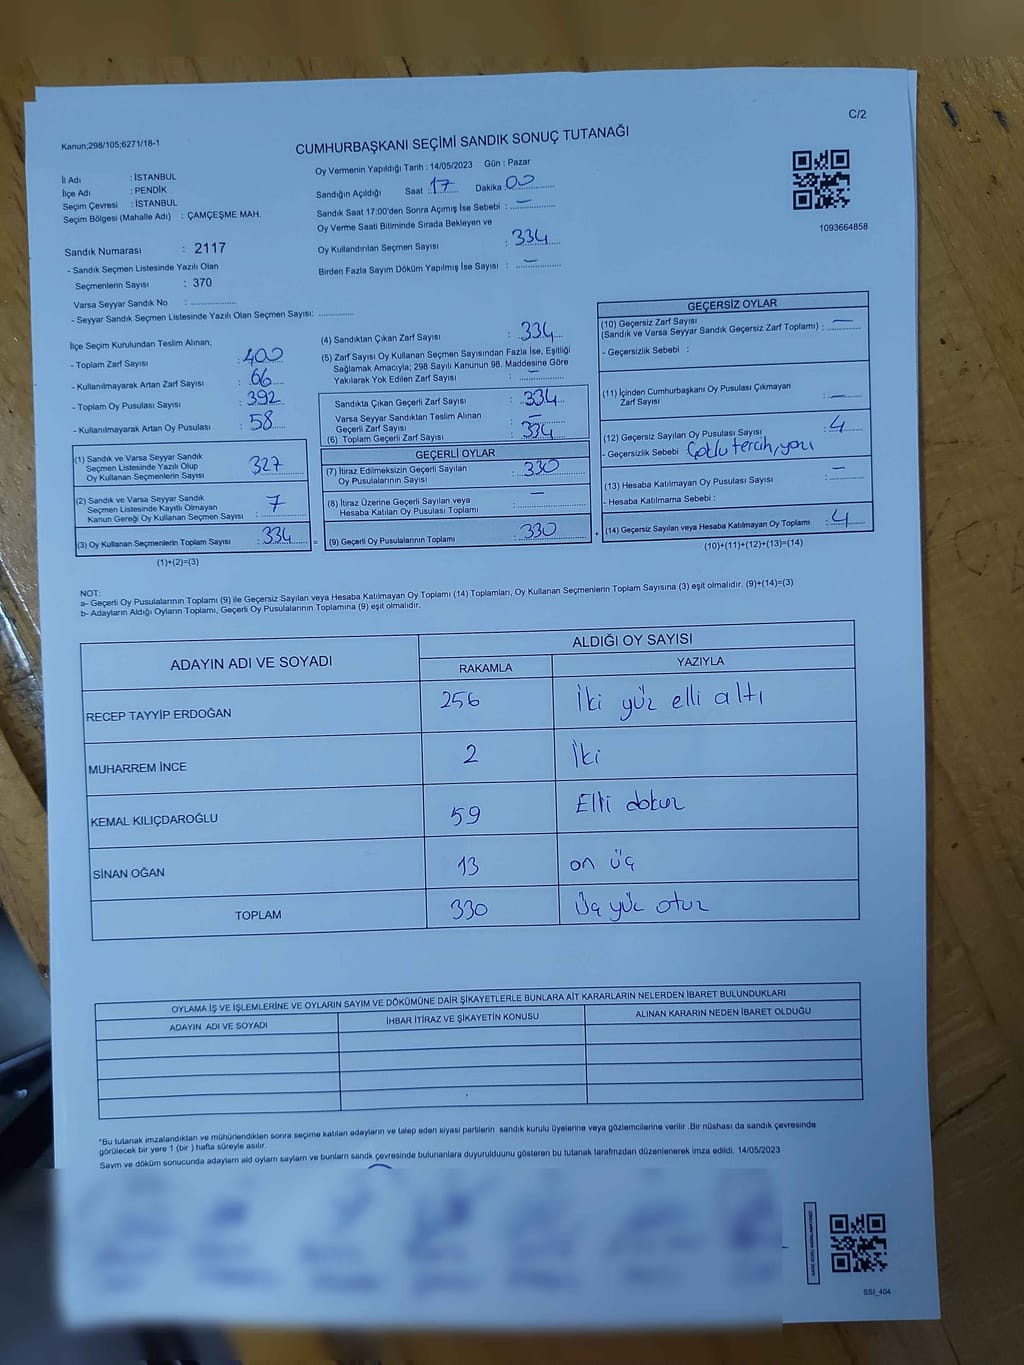 C/2
Kanun;298/105;6271/18-1
CUMHURBAŞKANI SEÇİMİ SANDIK SONUÇ TUTANAĞI
İl Adı : İSTANBUL
İlçe Adı : PENDİK
Seçim Çevresi : İSTANBUL
Seçim Bölgesi (Mahalle Adı) : ÇAMÇEŞME MAH.
Oy Vermenin Yapıldığı Tarih : 14/05/2023 Gün : Pazar
Sandığın Açıldığı Saat : 17 Dakika : 00
Sandık Saat 17:00'den Sonra Açımış İse Sebebi : —
Oy Verme Saati Bitiminde Sırada Bekleyen ve
Oy Kullandırılan Seçmen Sayısı : 334
Birden Fazla Sayım Döküm Yapılmış İse Sayısı : —
1093664858
Sandık Numarası : 2117
- Sandık Seçmen Listesinde Yazılı Olan
Seçmenlerin Sayısı : 370
Varsa Seyyar Sandık No : ................
- Seyyar Sandık Seçmen Listesinde Yazılı Olan Seçmen Sayısı: .............
İlçe Seçim Kurulundan Teslim Alınan;
- Toplam Zarf Sayısı : 400
- Kullanılmayarak Artan Zarf Sayısı : 66
- Toplam Oy Pusulası Sayısı : 392
- Kullanılmayarak Artan Oy Pusulası : 58
(1) Sandık ve Varsa Seyyar Sandık
Seçmen Listesinde Yazılı Olup
Oy Kullanan Seçmenlerin Sayısı : 327
(2) Sandık ve Varsa Seyyar Sandık
Seçmen Listesinde Kayıtlı Olmayan
Kanun Gereği Oy Kullanan Seçmen Sayısı : 7
(3) Oy Kullanan Seçmenlerin Toplam Sayısı : 334
(1)+(2)=(3)
(4) Sandıktan Çıkan Zarf Sayısı : 334
(5) Zarf Sayısı Oy Kullanan Seçmen Sayısından Fazla İse, Eşitliği
Sağlamak Amacıyla; 298 Sayılı Kanunun 98. Maddesine Göre
Yakılarak Yok Edilen Zarf Sayısı : —
Sandıkta Çıkan Geçerli Zarf Sayısı : 334
Varsa Seyyar Sandıktan Teslim Alınan
Geçerli Zarf Sayısı : —
(6) Toplam Geçerli Zarf Sayısı : 334
GEÇERLİ OYLAR
(7) İtiraz Edilmeksizin Geçerli Sayılan
Oy Pusulalarının Sayısı : 330
(8) İtiraz Üzerine Geçerli Sayılan veya
Hesaba Katılan Oy Pusulası Toplamı : —
= (9) Geçerli Oy Pusulalarının Toplamı : 330
GEÇERSİZ OYLAR
(10) Geçersiz Zarf Sayısı
(Sandık ve Varsa Seyyar Sandık Geçersiz Zarf Toplamı) : —
- Geçersizlik Sebebi :
(11) İçinden Cumhurbaşkanı Oy Pusulası Çıkmayan
Zarf Sayısı : —
(12) Geçersiz Sayılan Oy Pusulası Sayısı : 4
- Geçersizlik Sebebi Çoklu tercih, yazı
(13) Hesaba Katılmayan Oy Pusulası Sayısı : —
- Hesaba Katılmama Sebebi :
+ (14) Geçersiz Sayılan veya Hesaba Katılmayan Oy Toplamı : 4
(10)+(11)+(12)+(13)=(14)
NOT:
a- Geçerli Oy Pusulalarının Toplamı (9) ile Geçersiz Sayılan veya Hesaba Katılmayan Oy Toplamı (14) Toplamları, Oy Kullanan Seçmenlerin Toplam Sayısına (3) eşit olmalıdır. (9)+(14)=(3)
b- Adayların Aldığı Oyların Toplamı, Geçerli Oy Pusulalarının Toplamına (9) eşit olmalıdır.
ADAYIN ADI VE SOYADI ALDIĞI OY SAYISI
RAKAMLA YAZIYLA
RECEP TAYYİP ERDOĞAN 256 İki yüz elli altı
MUHARREM İNCE 2 İki
KEMAL KILIÇDAROĞLU 59 Elli dokuz
SİNAN OĞAN 13 on üç
TOPLAM 330 Üç yüz otuz
OYLAMA İŞ VE İŞLEMLERİNE VE OYLARIN SAYIM VE DÖKÜMÜNE DAİR ŞİKAYETLERLE BUNLARA AİT KARARLARIN NELERDEN İBARET BULUNDUKLARI
ADAYIN ADI VE SOYADI İHBAR İTİRAZ VE ŞİKAYETİN KONUSU ALINAN KARARIN NEDEN İBARET OLDUĞU
*Bu tutanak imzalandıktan ve mühürlendikten sonra seçime katılan adayların ve talep eden siyasi partilerin sandık kurulu üyelerine veya gözlemcilerine verilir .Bir nüshası da sandık çevresinde
görülecek bir yere 1 (bir ) hafta süreyle asılır.
Sayım ve döküm sonucunda adayların ald oyların sayların ve bunların sandık çevresinde bulunanlara duyurulduunu gösteren bu tutanak tarafmzdan düzenlenerek imza edildi. 14/05/2023
SSI_404